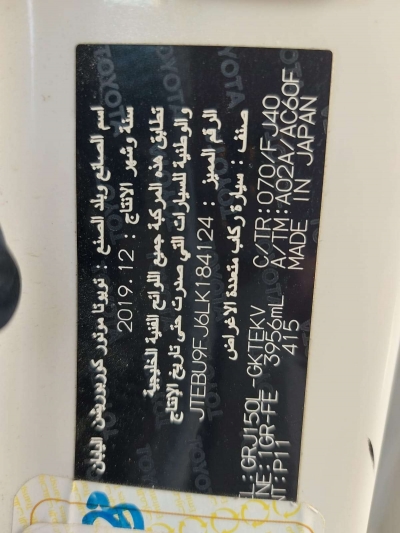 اسم الصانع وبلد الصنع : تويوتا موتور كوربوريشن اليابان
سنة وشهر الانتاج : 2019.12
تطابق هذه المركبة جميع اللوائح الفنية الخليجية
والوطنية للسيارات التي صدرت حتى تاريخ الإنتاج
الرقم المميز : JTEBU9FJ6LK184124
صنف : سيارة ركاب متعددة الاغراض
L:GRJ150L-GKTEKV C/TR:070/FJ40
NE:1GR-FE 3956mL A/TM:A02A/AC60F
NT:P11 415 MADE IN JAPAN